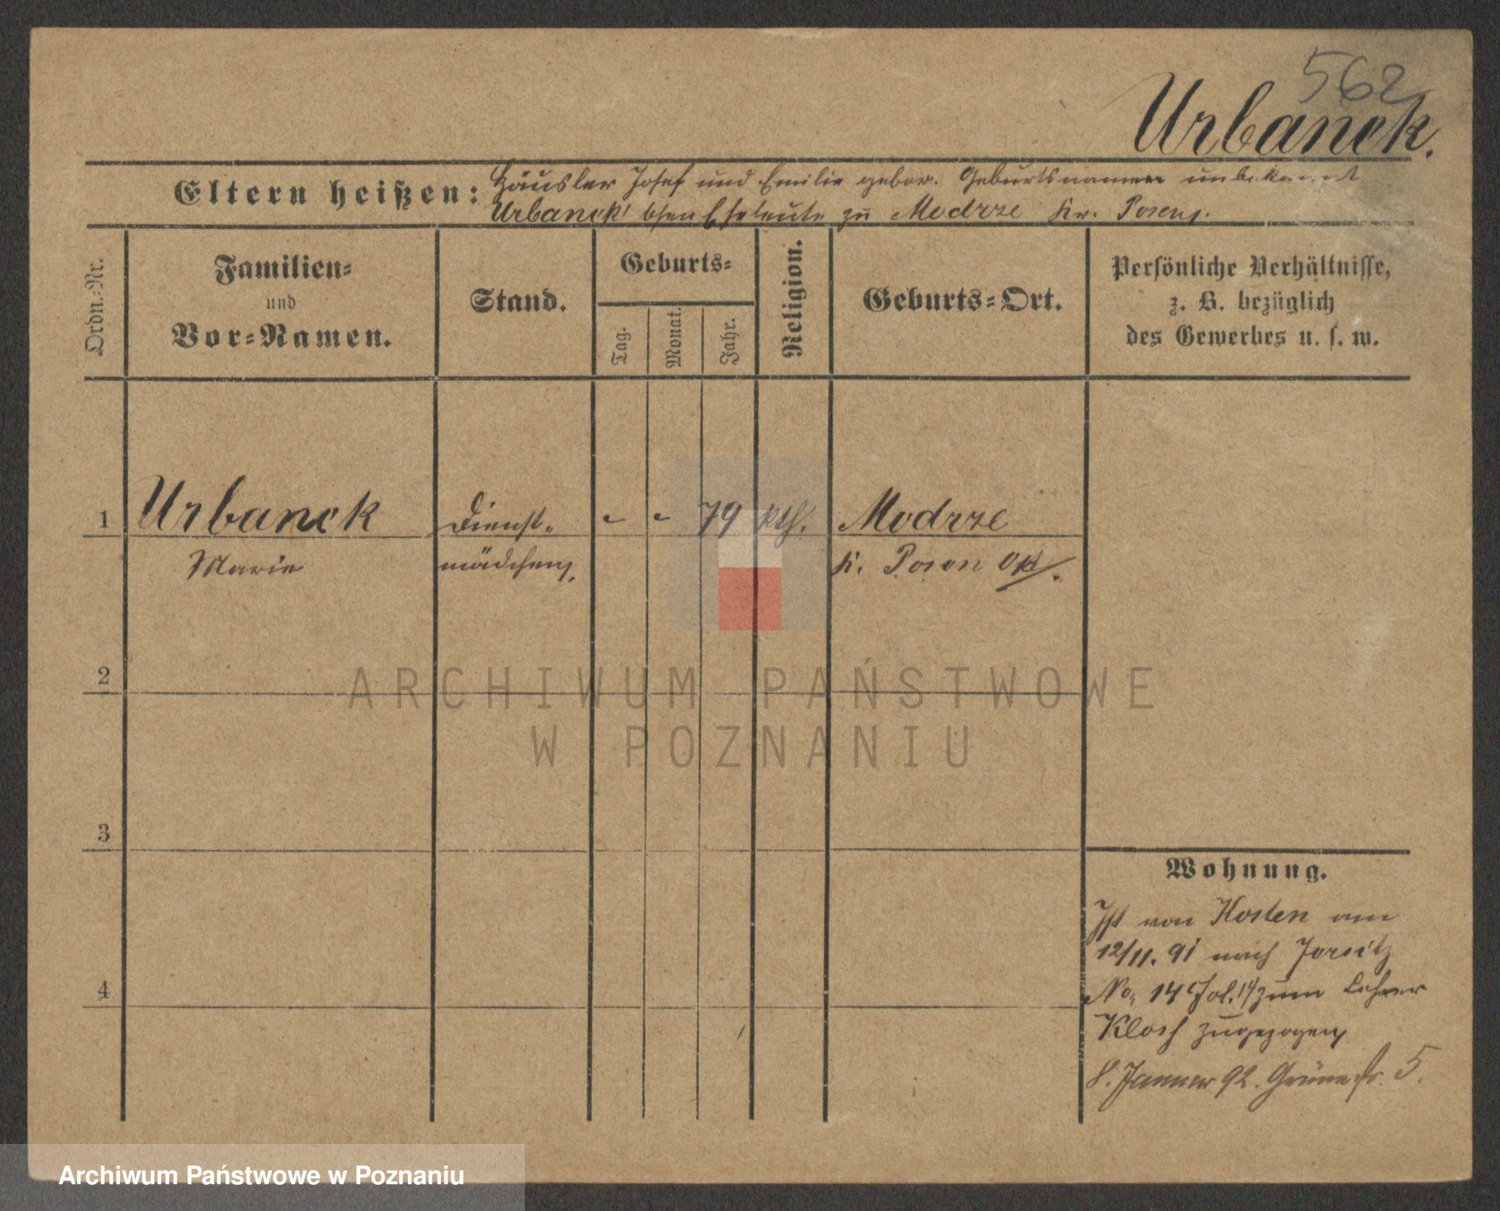 562
Urbanek.
Eltern heißen: Häusler Josef und Emilie gebor. Geburtsnamen unbekannt
Urbanek' Eheleute zu Modrze Kr. Posen.
Ordn.-Nr.
Familien-
und
Vor-Namen.
Stand.
Geburts-
Tag.
Monat.
Jahr.
Religion.
Geburts-Ort.
Persönliche Verhältnisse,
z. B. bezüglich
des Gewerbes u. s. w.
1 Urbanek Dienst- - - 79 kth. Modrze
Marie mädchen, K. Posen
2
3
4
Wohnung.
Ist von Kosten am
12/11. 91 nach Jersitz
No. 14 zum Lehrer
zugezogen
8. Januar 92. Grüne str. 5.
ARCHIWUM PAŃSTWOWE
W POZNANIU
Archiwum Państwowe w Poznaniu